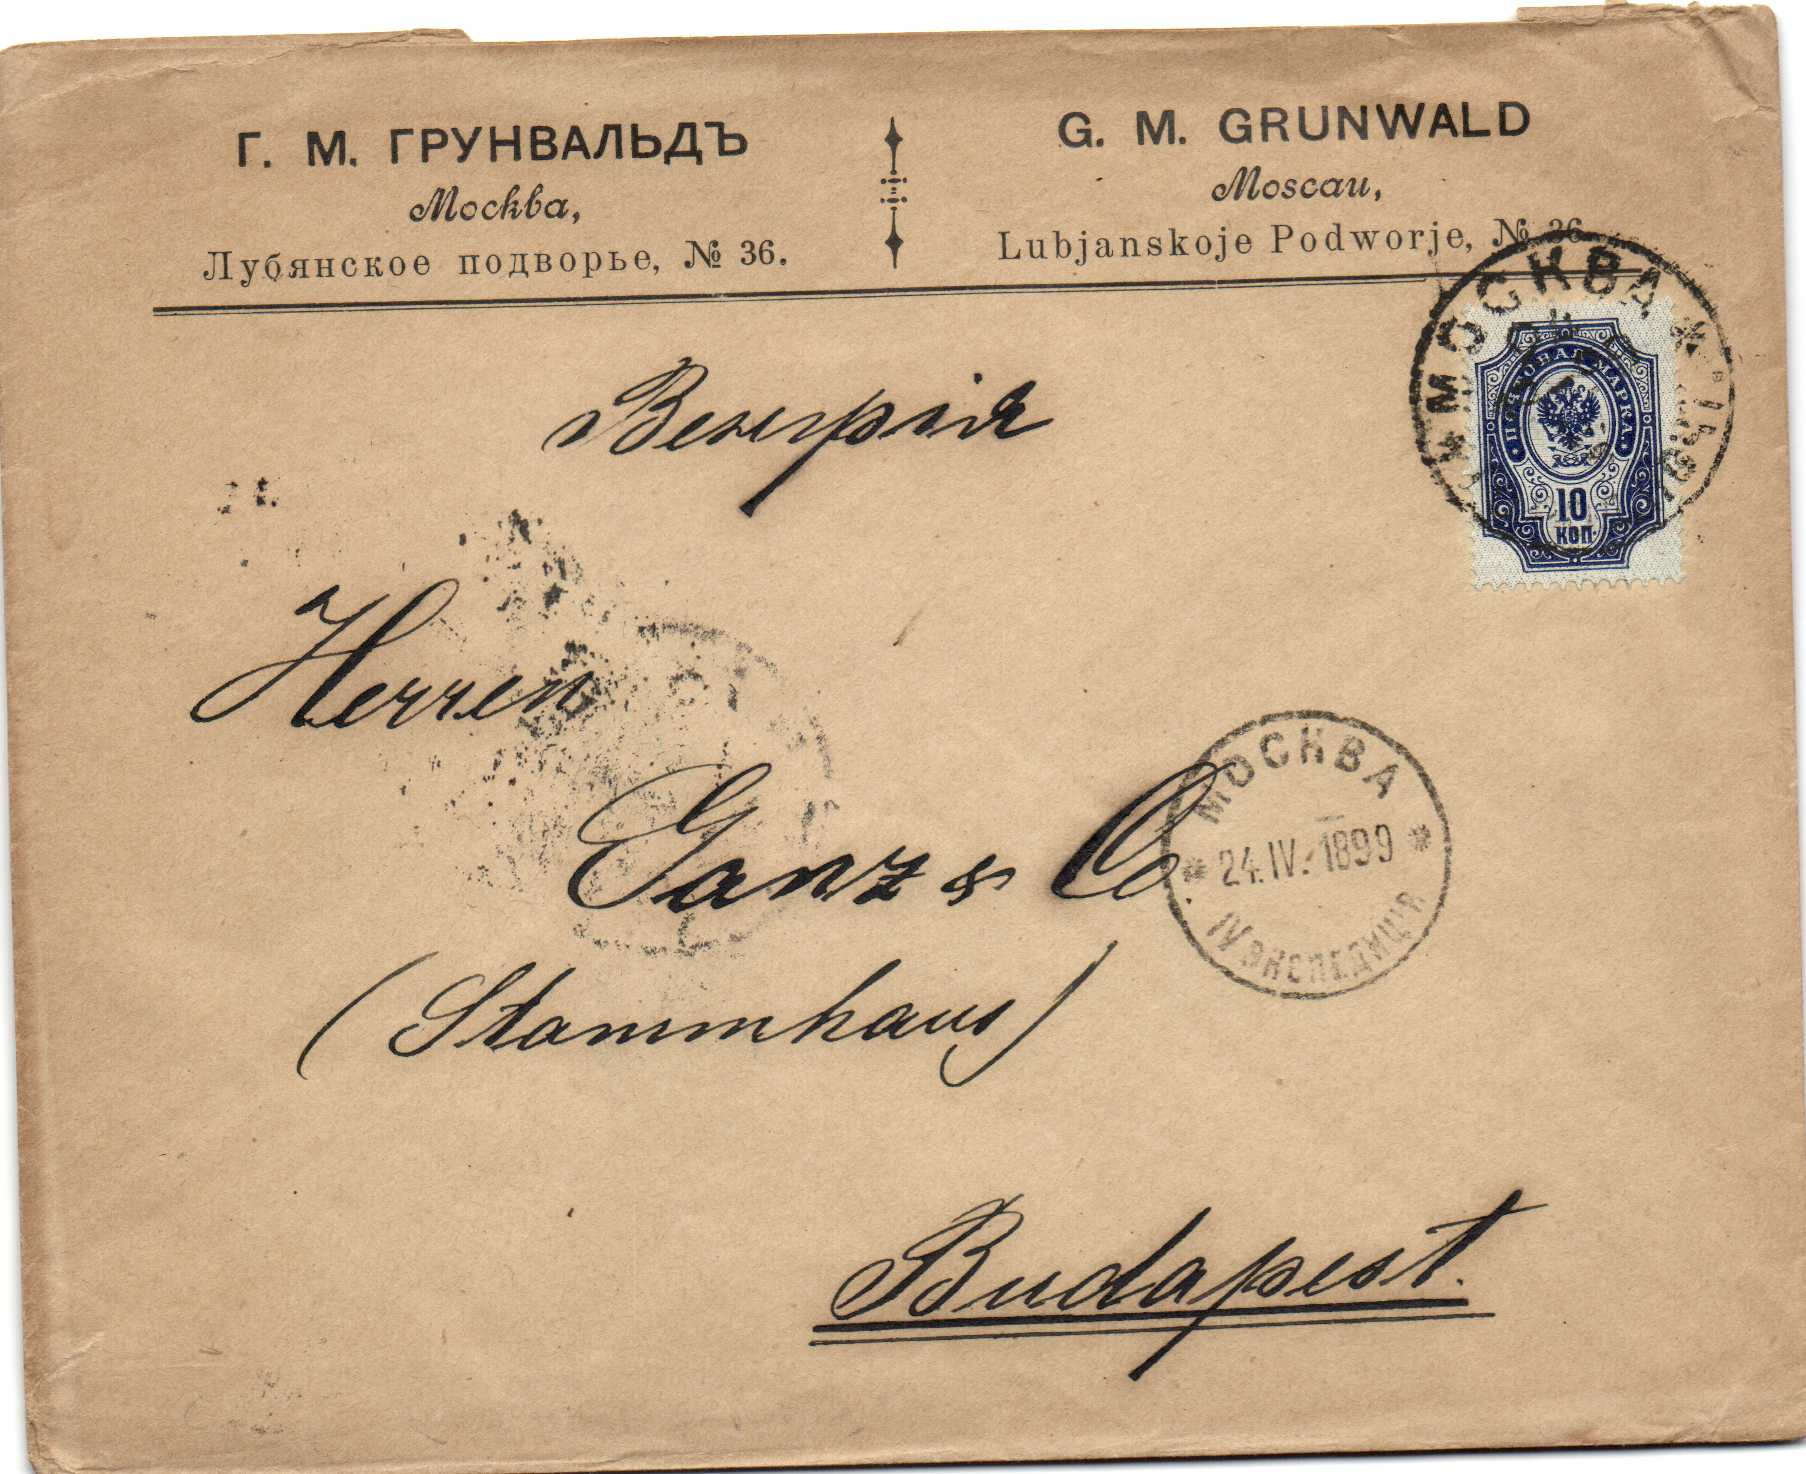 Г. М. ГРУНВАЛЬДЪ
Москва,
Лубянское подворье, № 36.
G. M. GRUNWALD
Moscau,
Lubjanskoje Podworje, № 36
МОСКВА
ПОЧТОВАЯ МАРКА
10
КОП
Венгрія
Herren
Ganz & Co.
(Stammhaus)
МОСКВА
24.IV.1899
IV ЭКСПЕДИЦІЯ
Budapest.